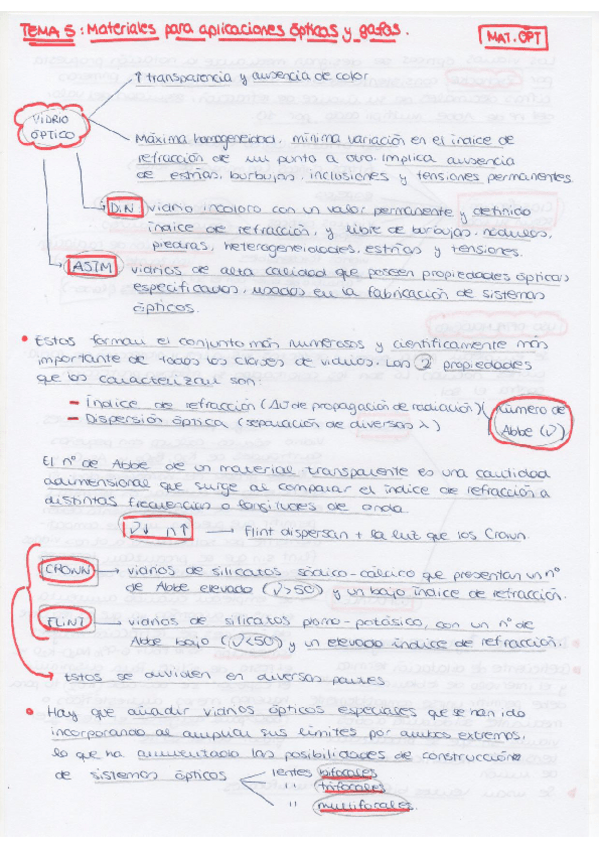 TEMA 5: Materiales para aplicaciones ópticas y gafas.
MAT. OPT
↑ transparencia y ausencia de color
VIDRIO
ÓPTICO
Máxima homogeneidad, mínima variación en el índice de
refracción de un punto a otro. Implica ausencia
de estrías, burbujas, inclusiones y tensiones permanentes.
DIN vidrio incoloro con un valor permanente y definido
índice de refracción, y libre de burbujas, nódulos,
piedras, heterogeneidades, estrías y tensiones.
ASTM vidrios de alta calidad que poseen propiedades ópticas
especificadas, usados en la fabricación de sistemas
ópticos.
• Estos forman el conjunto más numerosos y científicamente más
importante de todas las clases de vidrios. Las 2 propiedades
que los caracterizan son:
- Índice de refracción (ΔV de propagación de radiación)
- Dispersión óptica (separación de diversas λ)
Número de
Abbe (ν)
El nº de Abbe de un material transparente es una cantidad
adimensional que surge al comparar el índice de refracción a
distintas frecuencias o longitudes de onda.
ν↓ n↑ → Flint dispersan + la luz que los Crown.
CROWN → vidrios de silicatos sódico-cálcico que presentan un nº
de Abbe elevado (ν>50) y un bajo índice de refracción.
FLINT → vidrios de silicatos plomo-potásico, con un nº de
Abbe bajo (ν<50) y un elevado índice de refracción.
→ Estos se dividen en diversas partes
• Hay que añadir vidrios ópticos especiales que se han ido
incorporando al ampliar sus límites por ambos extremos,
lo que ha aumentado las posibilidades de construcción
de sistemas ópticos
lentes bifocales
" trifocales
" multifocales.